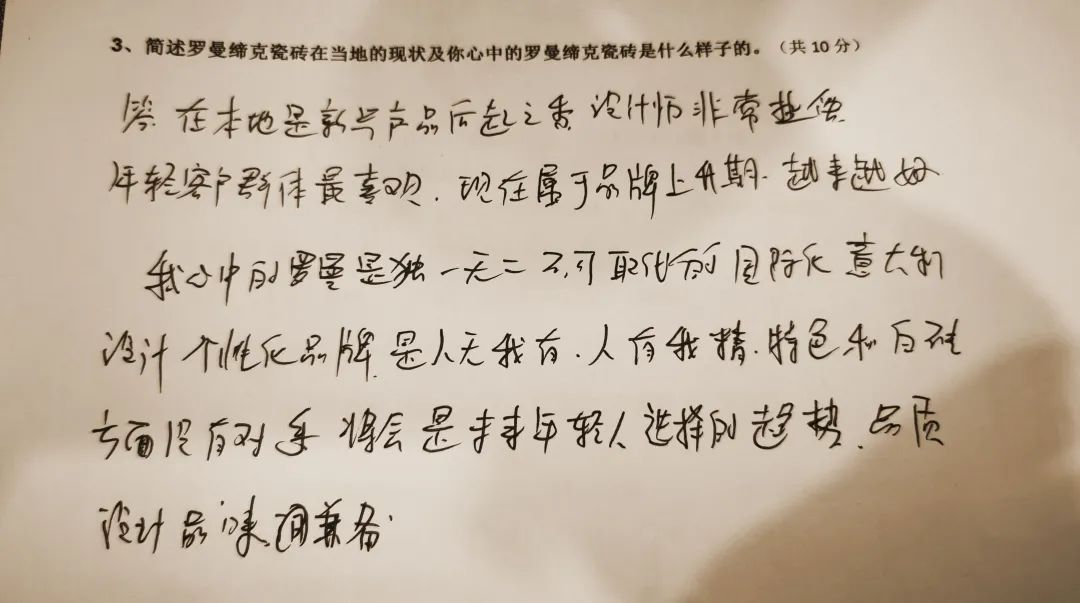 3、简述罗曼缔克瓷砖在当地的现状及你心中的罗曼缔克瓷砖是什么样子的。（共10分）
答 在本地是新兴产品后起之秀 设计师非常推供
年轻客户群体最喜欢、现在属于品牌上升期、越来越好
我心中的罗曼是独一无二 不可取代的 国际化 意大利
设计 个性化品牌 是人无我有、人有我精、特色和白砖
方面没有对手 将会是未来年轻人选择的趋势、品质
设计品味 调兼备